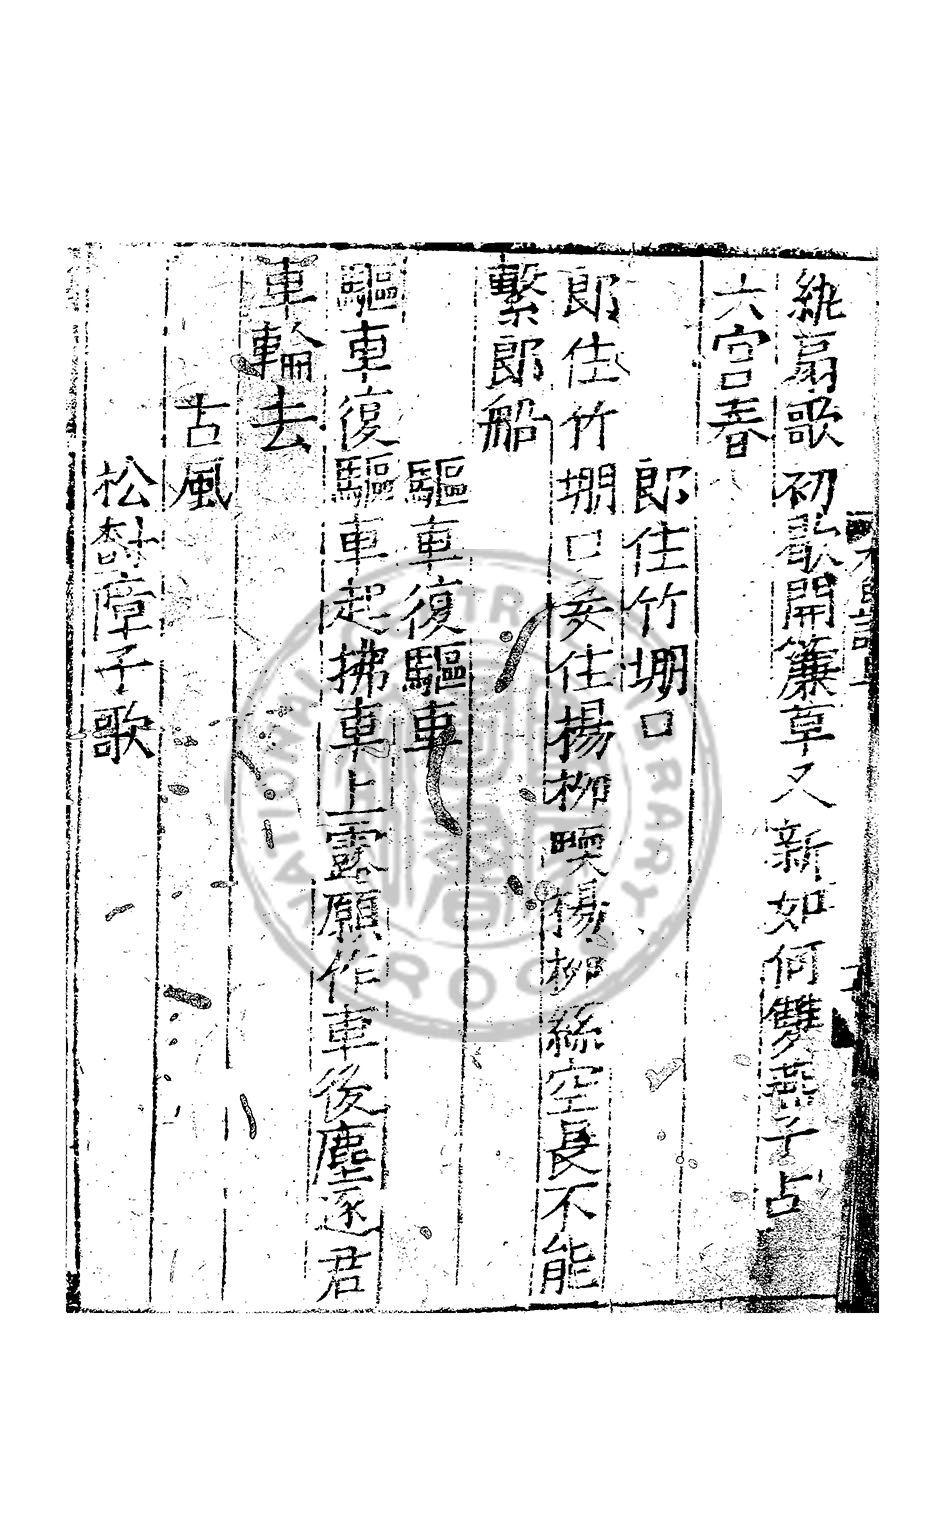 紈扇歌初歇開簾草又新如何雙燕子占
六宮春
郎住竹堋口
郎住竹堋口妾住楊柳㬉楊柳絲空長不能
繫郎船
驅車復驅車
驅車復驅車起拂車上露願作車後塵逐君
車輪去
古風
松樹障子歌
NATIONAL CENTRAL LIBRARY